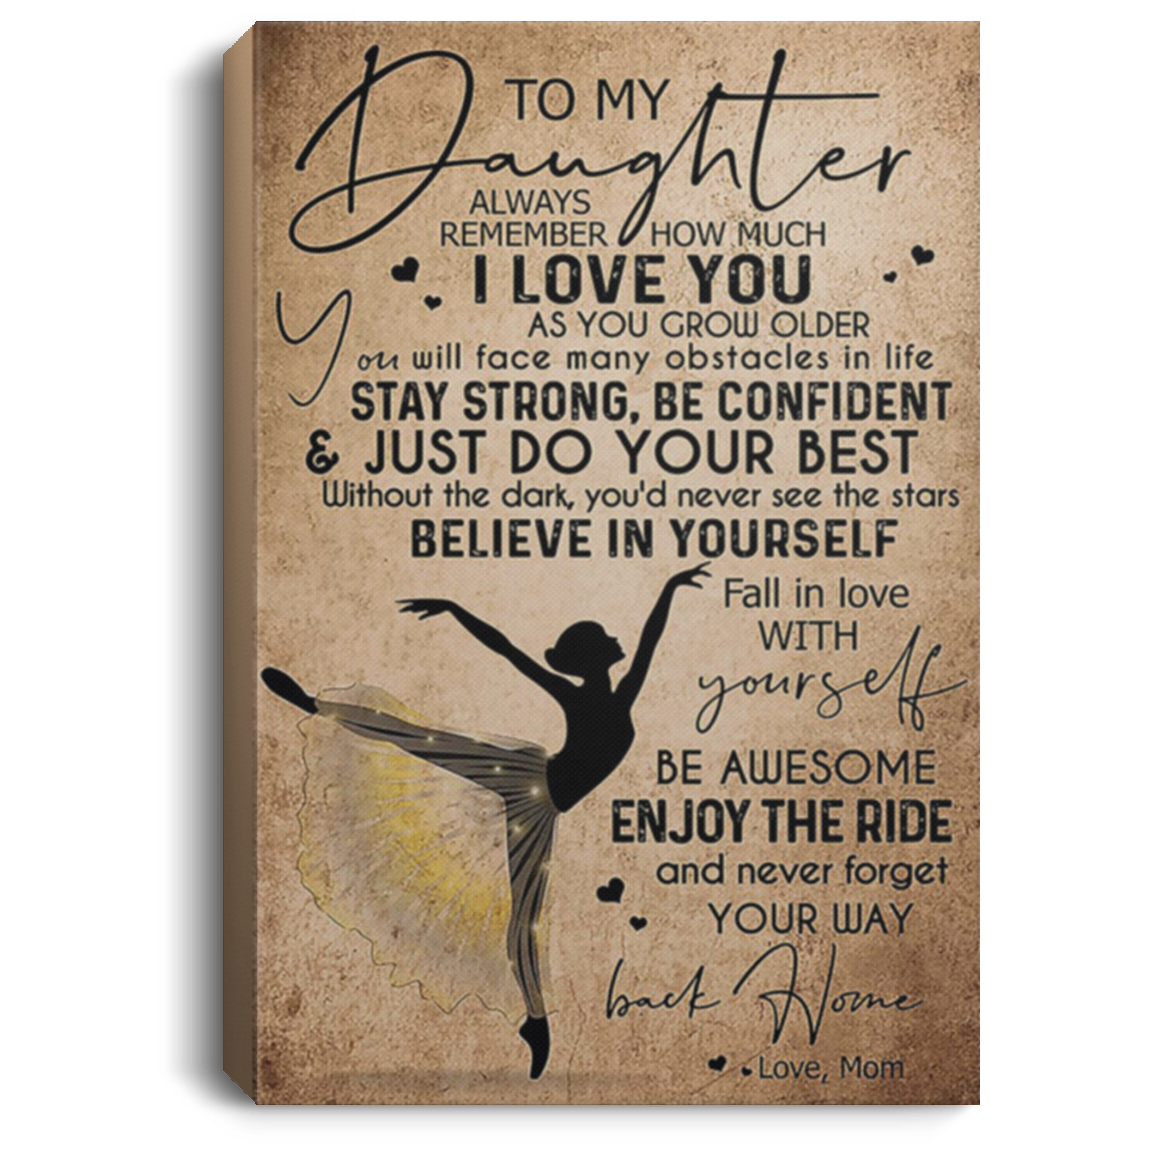 TO MY
Daughter
ALWAYS
REMEMBER HOW MUCH
I LOVE YOU
AS YOU GROW OLDER
You will face many obstacles in life
STAY STRONG, BE CONFIDENT
& JUST DO YOUR BEST
Without the dark, you'd never see the stars
BELIEVE IN YOURSELF
Fall in love
WITH
yourself
BE AWESOME
ENJOY THE RIDE
and never forget
YOUR WAY
back Home
Love, Mom